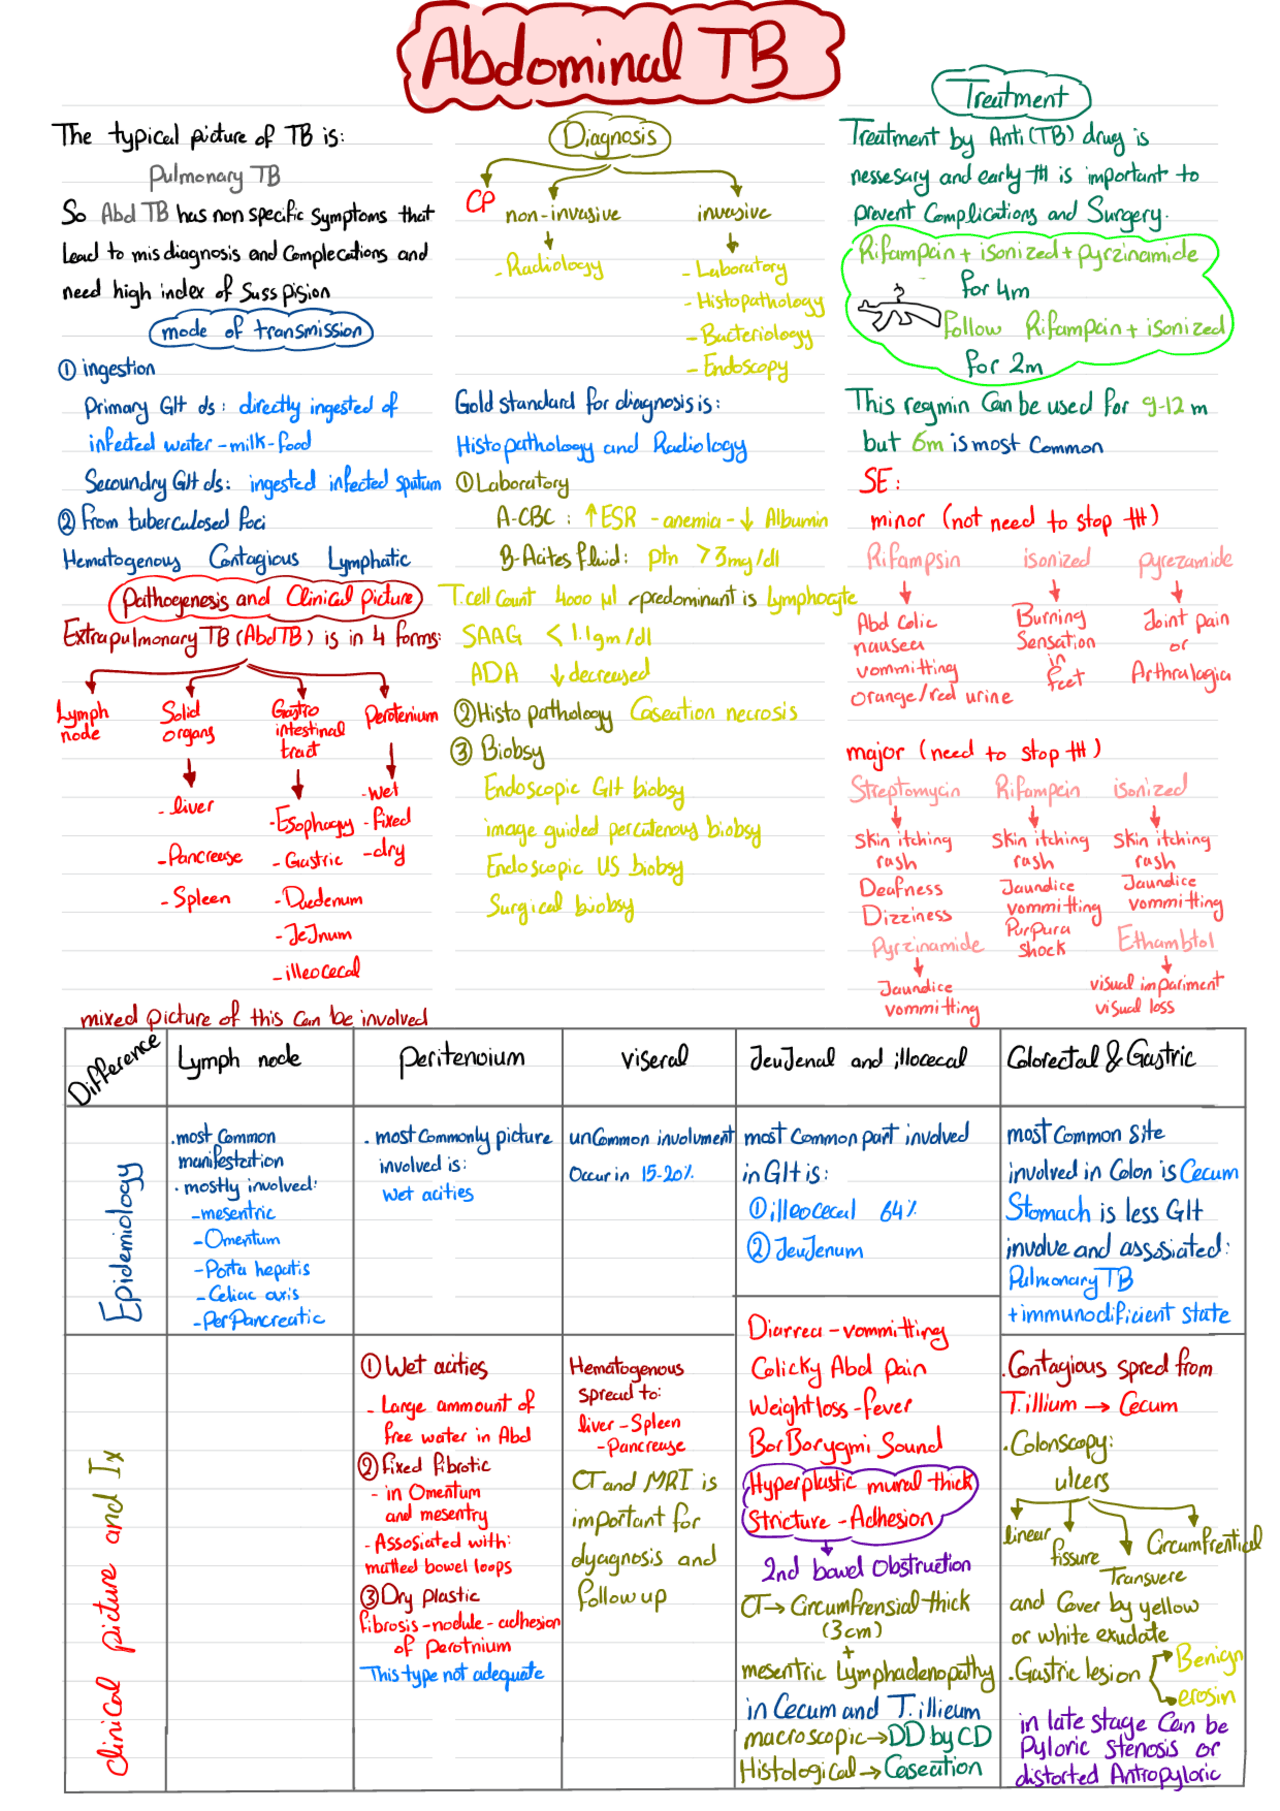 Abdominal TB
The typical picture of TB is:
Pulmonary TB
So Abd TB has non specific symptoms that
Lead to misdiagnosis and Complecations and
need high index of Susspision
mode of transmission
① ingestion
Primary GIt ds: directly ingested of
infected water - milk - food
Secoundry GIt ds: ingested infected sputum
② From tuberculosed foci
Hematogenous Contagious Lymphatic
Pathogenesis and Clinical picture
Extrapulmonary TB (Abd TB) is in 4 forms:
Lymph node
Solid organs
- liver
- Pancrease
- Spleen
Gastro intestinal tract
- Esophagy
- Gastric
- Duedenum
- JeJnum
- illeocecal
Perotenium
- wet
- fixed
- dry
mixed picture of this can be involved
Diagnosis
CP
non-invasive
- Radiology
invasive
- Laboratory
- Histopathology
- Bacteriology
- Endoscopy
Gold standard for diagnosis is:
Histopathology and Radiology
① Laboratory
A-CBC: ↑ESR - anemia - ↓ Albumin
B-Acites fluid: ptn > 3mg/dl
T.cell Count 4000 µl predominant is Lymphocyte
SAAG < 1.1gm/dl
ADA ↓ decreased
② Histopathology Caseation necrosis
③ Biobsy
Endoscopic GIt biobsy
image guided percutenous biobsy
Endoscopic US biobsy
Surgical biobsy
Treatment
Treatment by Anti (TB) drug is
nessesary and early ttt is important to
prevent Complications and Surgery.
Rifampcin + isonized + pyrzinamide
for 4m
follow Rifampcin + isonized
for 2m
This regmin Can be used for 9-12 m
but 6m is most common
SE:
minor (not need to stop ttt)
Rifampsin
Abd Colic
nausea
vommitting
orange/red urine
isonized
Burning
Sensation
in
feet
pyrezamide
Joint pain
or
Arthralagia
major (need to stop ttt)
Streptomycin
Skin itching
rash
Deafness
Dizziness
Rifampcin
Skin itching
rash
Jaundice
vommitting
Purpura
shock
isonized
Skin itching
rash
Jaundice
vommitting
Pyrzinamide
Jaundice
vommitting
Ethambtol
visual impariment
visual loss
Difference
Lymph node
Peritenoium
viseral
JeuJenal and illocecal
Colorectal & Gastric
Epidemiology
. most Common
manifestation
. mostly involved:
- mesentric
- Omentum
- Porta hepatis
- Celiac axis
- PerPancreatic
. most Commonly picture
involved is:
wet acities
unCommon involvment
Occur in 15-20%
most Common part involved
in GIt is:
① illeocecal 64%
② JeuJenum
most Common Site
involved in Colon is Cecum
Stomach is less GIt
involve and asssiated:
Pulmonary TB
+ immunodificient state
Clinical picture and Ix
① Wet acities
- Large ammount of
free water in Abd
② fixed fibrotic
- in Omentum
and mesentry
- Assosiated with:
matted bowel loops
③ Dry plastic
fibrosis - nodule - adhesion
of perotnium
This type not adequate
Hematogenous
spread to:
liver - Spleen
- Pancrease
CT and MRI is
important for
dyagnosis and
follow up
Diarrea - vommitting
Colicky Abd pain
Weight loss - fever
BorBorygmi Sound
Hyperplastic mural thick
Stricture - Adhesion
2nd bowel Obstruction
CT → Circumfrensial thick
(3cm)
+
mesentric Lymphadenopathy
in Cecum and T.illieum
macroscopic → DD by CD
Histological → Caseation
. Contagious spred from
T.illium → Cecum
. Colonscopy:
ulcers
linear
fissure
Transvere
Circumfrential
and Cover by yellow
or white exudate
. Gastric lesion
Benign
erosin
in late stage Can be
Pyloric stenosis or
distorted Antropyloric